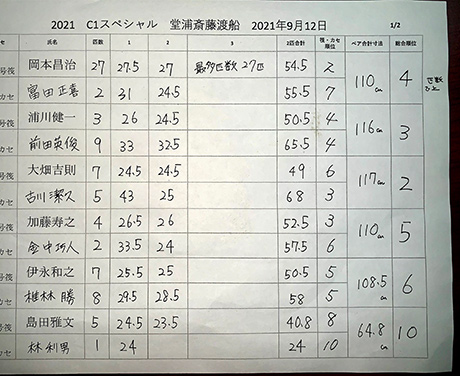 2021 C1スペシャル 堂浦斎藤渡船 2021年9月12日 1/2
氏名 匹数 1 2 3 2匹合計 筏・カセ順位 ペア合計寸法 総合順位
号筏 岡本昌治 27 27.5 27 最多匹数 27匹 54.5 2 110cm 4
カセ 富田正喜 2 31 24.5 55.5 7
号筏 浦川健一 3 26 24.5 50.5 4 116cm 3
カセ 前田英俊 9 33 32.5 65.5 4
号筏 大畑吉則 7 24.5 24.5 49 6 117cm 2
カセ 古川潔久 5 43 25 68 3
号筏 加藤寿之 4 26.5 26 52.5 3 110cm 5
カセ 2 33.5 24 57.5 6
号筏 伊永和之 7 25.5 25 50.5 5 108.5cm 6
カセ 椎林 勝 8 29.5 28.5 58 5
号筏 島田雅文 5 24.5 23.5 40.8 8 64.8cm 10
カセ 林 利男 1 24 24 10